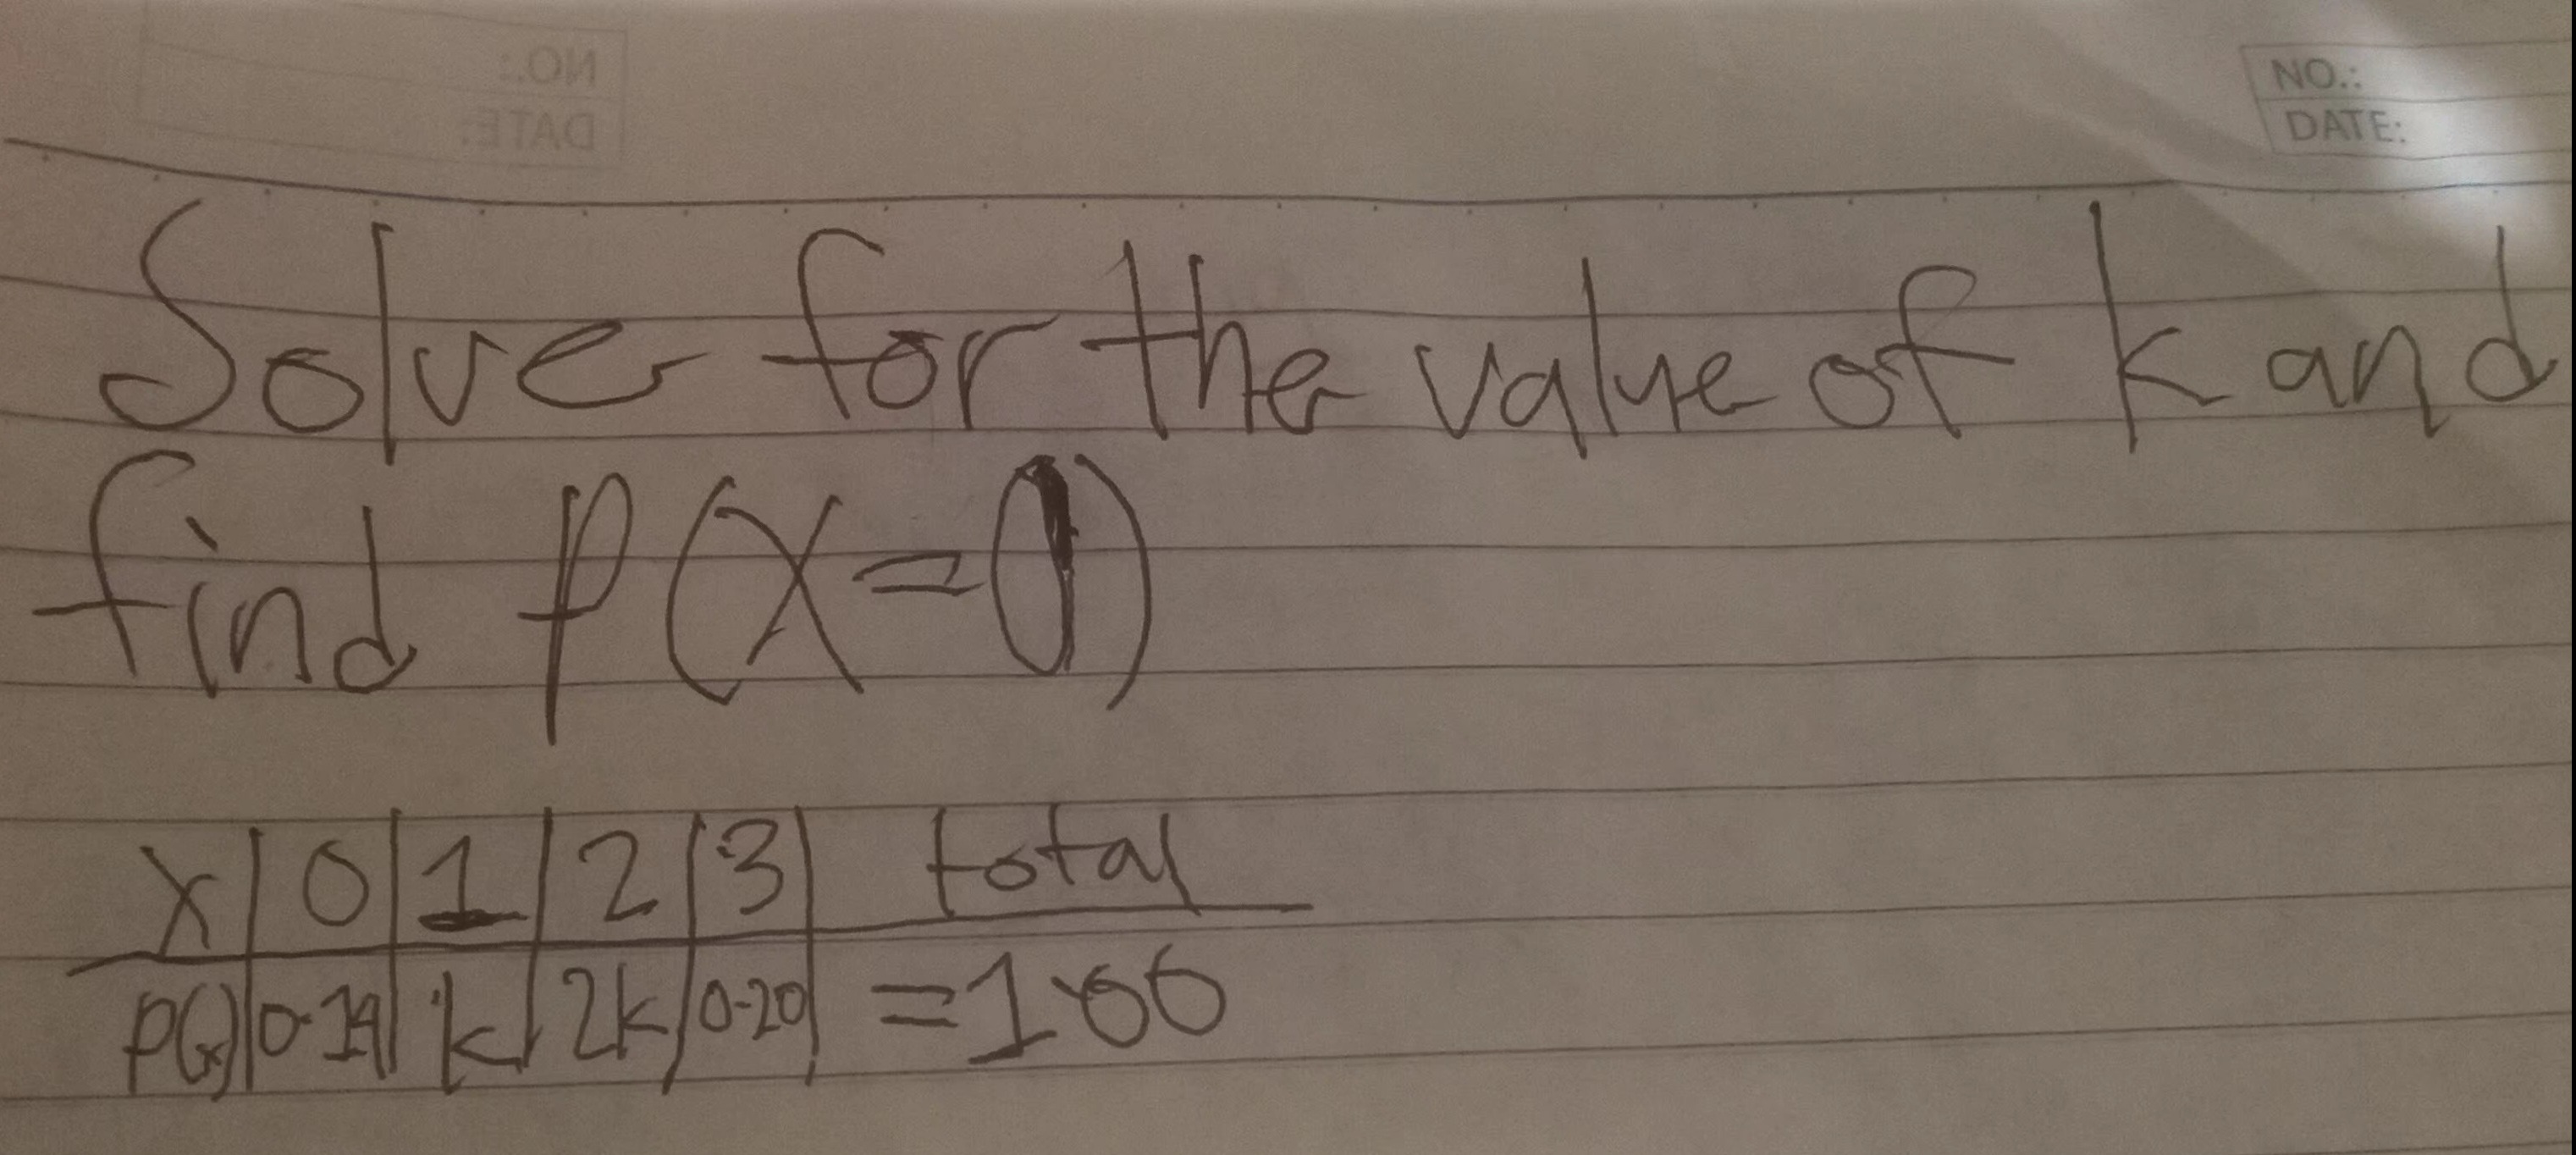 NO.:
DATE:
Solve for the value of k and
find P(X=0)
X | 0 | 1 | 2 | 3 | total
P(x) | 0.14 | k | 2k | 0.20 | =1.00